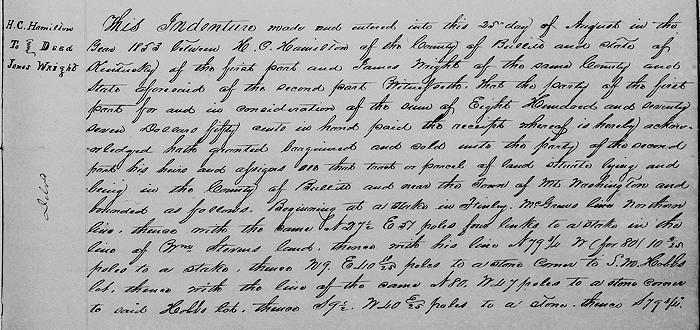 H.C. Hamilton
To } Deed
James Wright
This Indenture made and entered into this 25th day of August in the
Year 1853 between H. C. Hamilton of the County of Bullitt and state of
Kentucky of the first part and James Wright of the same County and
State aforesaid of the second part Witnesseth. That the party of the first
part for and in consideration of the sum of Eight Hundred and seventy
seven Dollars fifty cents in hand paid the receipt whereof is hereby acknow
ledged hath granted bargained and sold unto the party of the second
part his heirs and assigns all that tract or parcel of land situate lying and
being in the County of Bullitt and near the Town of Mt Washington and
bounded as follows. Beginning at a stake in Finley. McGraws line Northern
line. thence with the same N 27½ E 51 poles four links to a stake in the
line of Wm Stevens land. thence with his line N 79¼ W (for 80) 10 8/25
poles to a stake. thence W 9. E 40 poles to a stone corner to S. M. Hobbs
lot. thence with the line of the same N 80. W 47 poles to a stone corner
to said Hobbs lot. thence S 9½. W 40 poles to a stone. thence S 79 3/4.